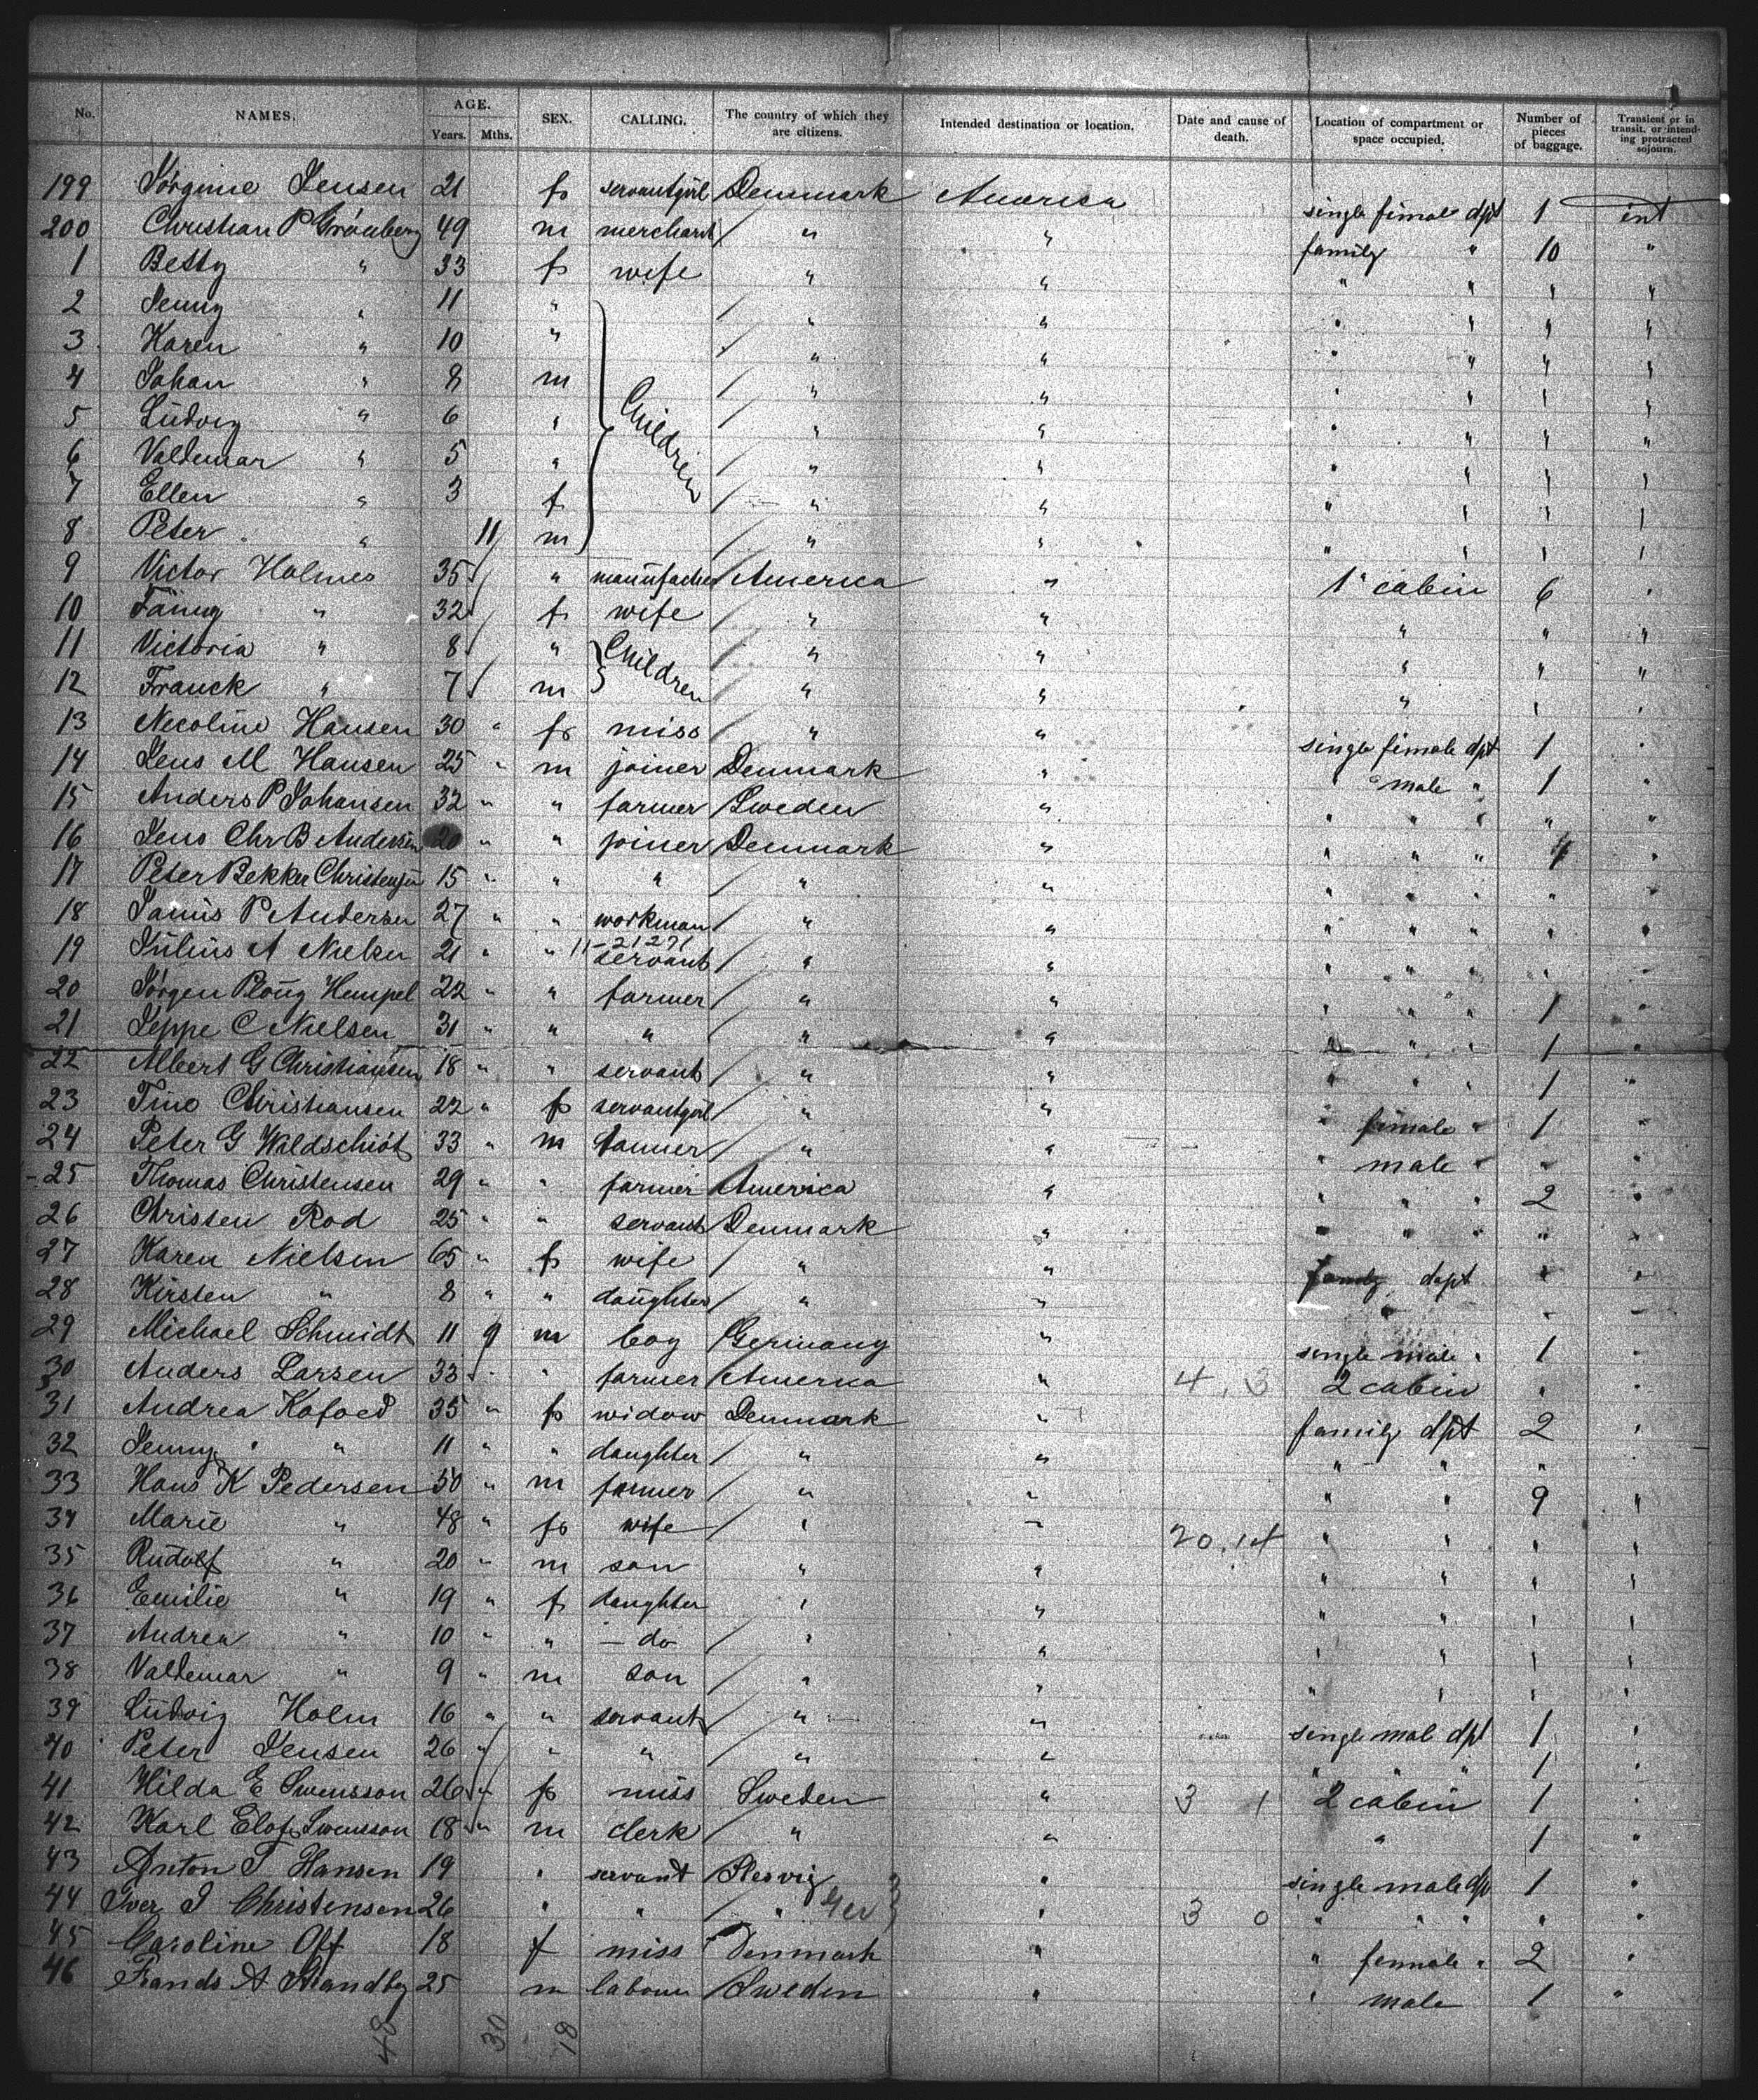 No. NAMES. AGE. Years. Mths. SEX. CALLING. The country of which they are citizens. Intended destination or location. Date and cause of death. Location of compartment or space occupied. Number of pieces of baggage. Transient or in transit, or intending protracted sojourn.
199 Jörgine Jensen 21 f servantgirl Denmark America single female dpt 1 int
200 Christian P Grönberg 49 m merchant " " family " 10 "
1 Betty " 33 f wife " " " " " "
2 Jenny " 11 " Children " " " " " "
3 Karen " 10 " " " " " " "
4 Johan " 8 m " " " " " "
5 Ludvig " 6 " " " " " " "
6 Valdemar " 5 " " " " " " "
7 Ellen " 3 f " " " " " "
8 Peter " 11 m " " " " " "
9 Victor Holmes 35 " manufacter America " 1' cabin 6 "
10 Fanny " 32 f wife " " " " "
11 Victoria " 8 " Children " " " " "
12 Franck " 7 m " " " " "
13 Necoline Hansen 30 " f miss " " single female dpt 1 "
14 Jens M Hansen 25 " m joiner Denmark " " male " 1 "
15 Anders P Johansen 32 " " farmer Sweden " " " " " "
16 Jens Chr B Andersen 20 " " joiner Denmark " " " " "
17 Peter Bekker Christensen 15 " " " " " " " " " "
18 Janus P Andersen 27 " " workman " " " " " " "
11-21271
19 Julius A Nielsen 21 " " servant " " " " " " "
20 Jörgen Ploug Hempel 22 " " farmer " " " " " 1 "
21 Jeppe C Nielsen 31 " " " " " " " " 1 "
22 Albert G Christiansen 18 " " servant " " " " " 1 "
23 Tine Christiansen 22 " f servantgirl " " " female " 1 "
24 Peter G Wildschiöt 33 " m tanner " " " male " " "
25 Thomas Christensen 29 " " farmer America " " " " 2 "
26 Christen Rod 25 " " servant Denmark " " " " " "
27 Karen Nielsen 65 " f wife " " family dept " "
28 Kirsten " 8 " " daughter " " " " "
29 Michael Schmidt 11 9 m boy Germany " single male " 1 "
30 Anders Larsen 33 " " farmer America " 4, 3 2 cabin " "
31 Andrea Kofoed 35 " f widow Denmark " family dpt 2 "
32 Jenny " 11 " " daughter " " " " " "
33 Hans K Pedersen 50 " m farmer " " " " 9 "
34 Marie " 48 " f wife " " 20,14 " " " "
35 Rudolf " 20 " m son " " " " " "
36 Emilie " 19 " f daughter " " " " " "
37 Andrea " 10 " " - do " " " " " "
38 Valdemar " 9 " m son " " " " " "
39 Ludvig Holm 16 " " servant " " single mal dpt 1 "
40 Peter Jensen 26 " " " " " " " " 1 "
41 Hilda E Swensson 26 " f miss Sweden " 3 1 2 cabin 1 "
42 Karl Elof Swensson 18 " m clerk " " " 1 "
43 Anton T Hansen 19 " servant Slesvig " single male dpt 1 "
44 Iver J Christensen 26 " " " Ger " 3 0 " " " " "
45 Caroline Off 18 f miss Denmark " " female " 2 "
46 Frands A Strandby 25 m labour Sweden " " male 1 "
48 30 18